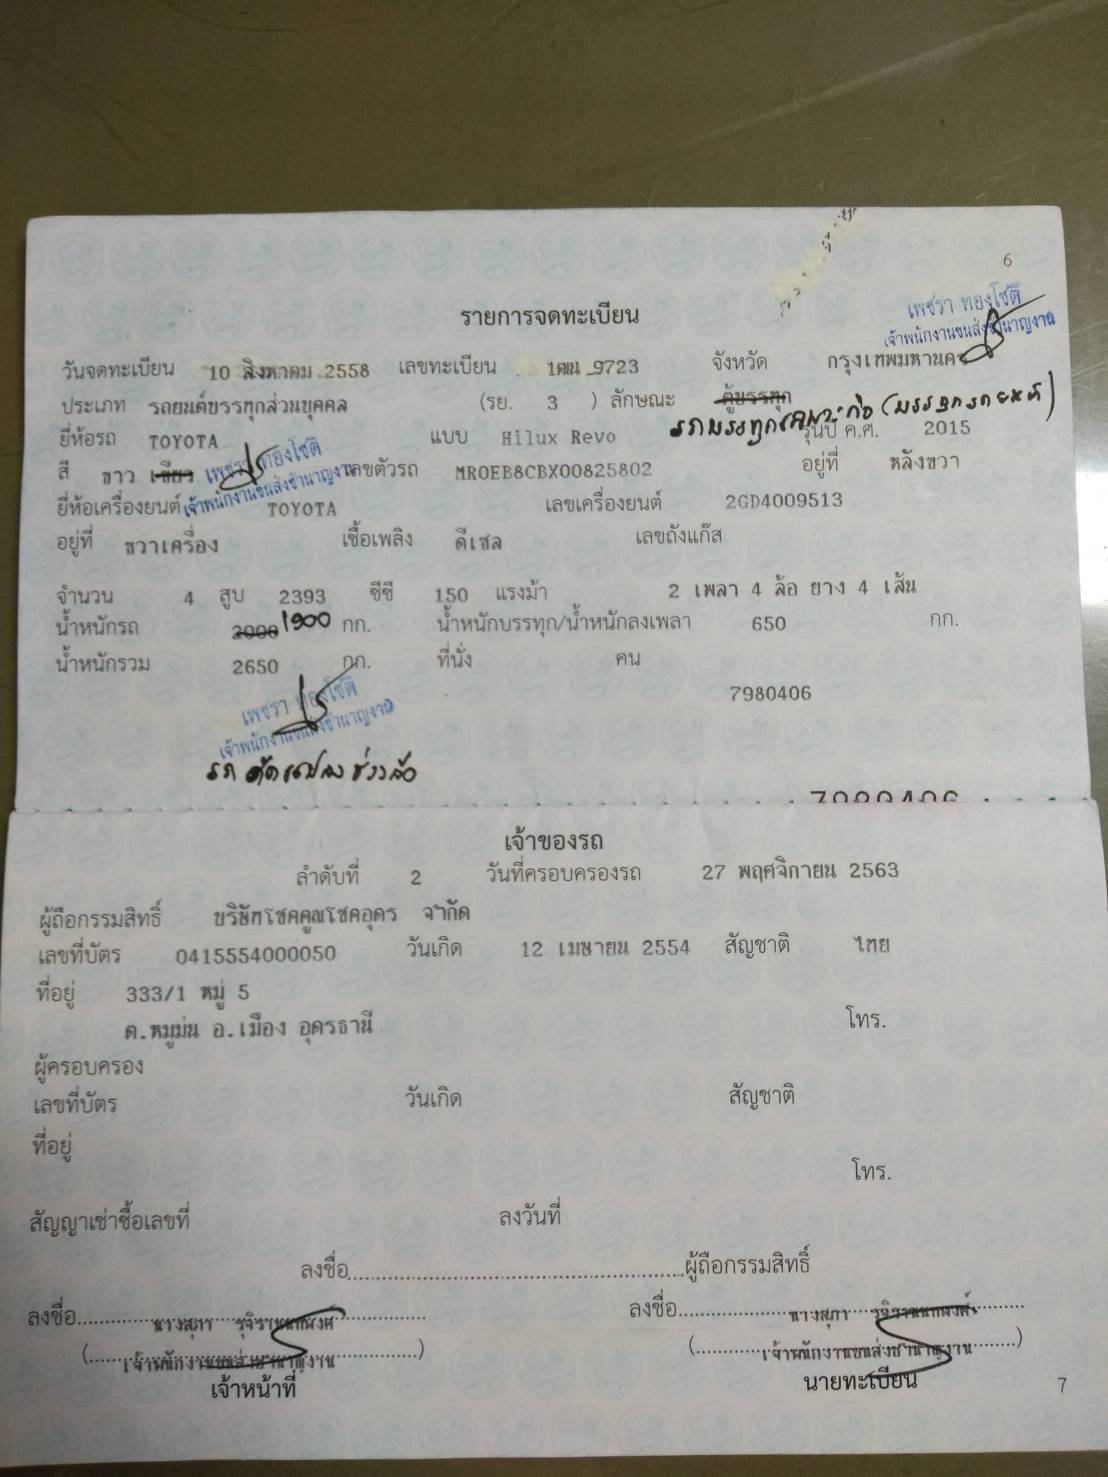 6
รายการจดทะเบียน
เพชรา ทองโชติ
เจ้าพนักงานขนส่งชำนาญงาน
วันจดทะเบียน 10 สิงหาคม 2558 เลขทะเบียน 1ฒน 9723 จังหวัด กรุงเทพมหานคร
ประเภท รถยนต์บรรทุกส่วนบุคคล (รย. 3 ) ลักษณะ ตู้บรรทุก
รถบรรทุกเฉพาะกิจ (บรรทุกรถยนต์)
ยี่ห้อรถ TOYOTA แบบ Hilux Revo รุ่นปี ค.ศ. 2015
สี ขาว เขียว เพชรา ทองโชติ เลขตัวรถ MR0EB8CBX00825802 อยู่ที่ หลังขวา
เจ้าพนักงานขนส่งชำนาญงาน
ยี่ห้อเครื่องยนต์ TOYOTA เลขเครื่องยนต์ 2GD4009513
อยู่ที่ ขวาเครื่อง เชื้อเพลิง ดีเซล เลขถังแก๊ส
จำนวน 4 สูบ 2393 ซีซี 150 แรงม้า 2 เพลา 4 ล้อ ยาง 4 เส้น
น้ำหนักรถ 2000 1900 กก. น้ำหนักบรรทุก/น้ำหนักลงเพลา 650 กก.
น้ำหนักรวม 2650 กก. ที่นั่ง คน
7980406
เพชรา ทองโชติ
เจ้าพนักงานขนส่งชำนาญงาน
รถดัดแปลงช่วงล้อ
7980406
เจ้าของรถ
ลำดับที่ 2 วันที่ครอบครองรถ 27 พฤศจิกายน 2563
ผู้ถือกรรมสิทธิ์ บริษัทโชคคูณโชคอุดร จำกัด
เลขที่บัตร 0415554000050 วันเกิด 12 เมษายน 2554 สัญชาติ ไทย
ที่อยู่ 333/1 หมู่ 5
ต.หมูม่น อ.เมือง อุดรธานี โทร.
ผู้ครอบครอง
เลขที่บัตร วันเกิด สัญชาติ
ที่อยู่
โทร.
สัญญาเช่าซื้อเลขที่ ลงวันที่
ลงชื่อ ผู้ถือกรรมสิทธิ์
ลงชื่อ นางสุภา ลงชื่อ นางสุภา
(เจ้าพนักงานขนส่งชำนาญงาน) (เจ้าพนักงานขนส่งชำนาญงาน)
เจ้าหน้าที่ นายทะเบียน
7